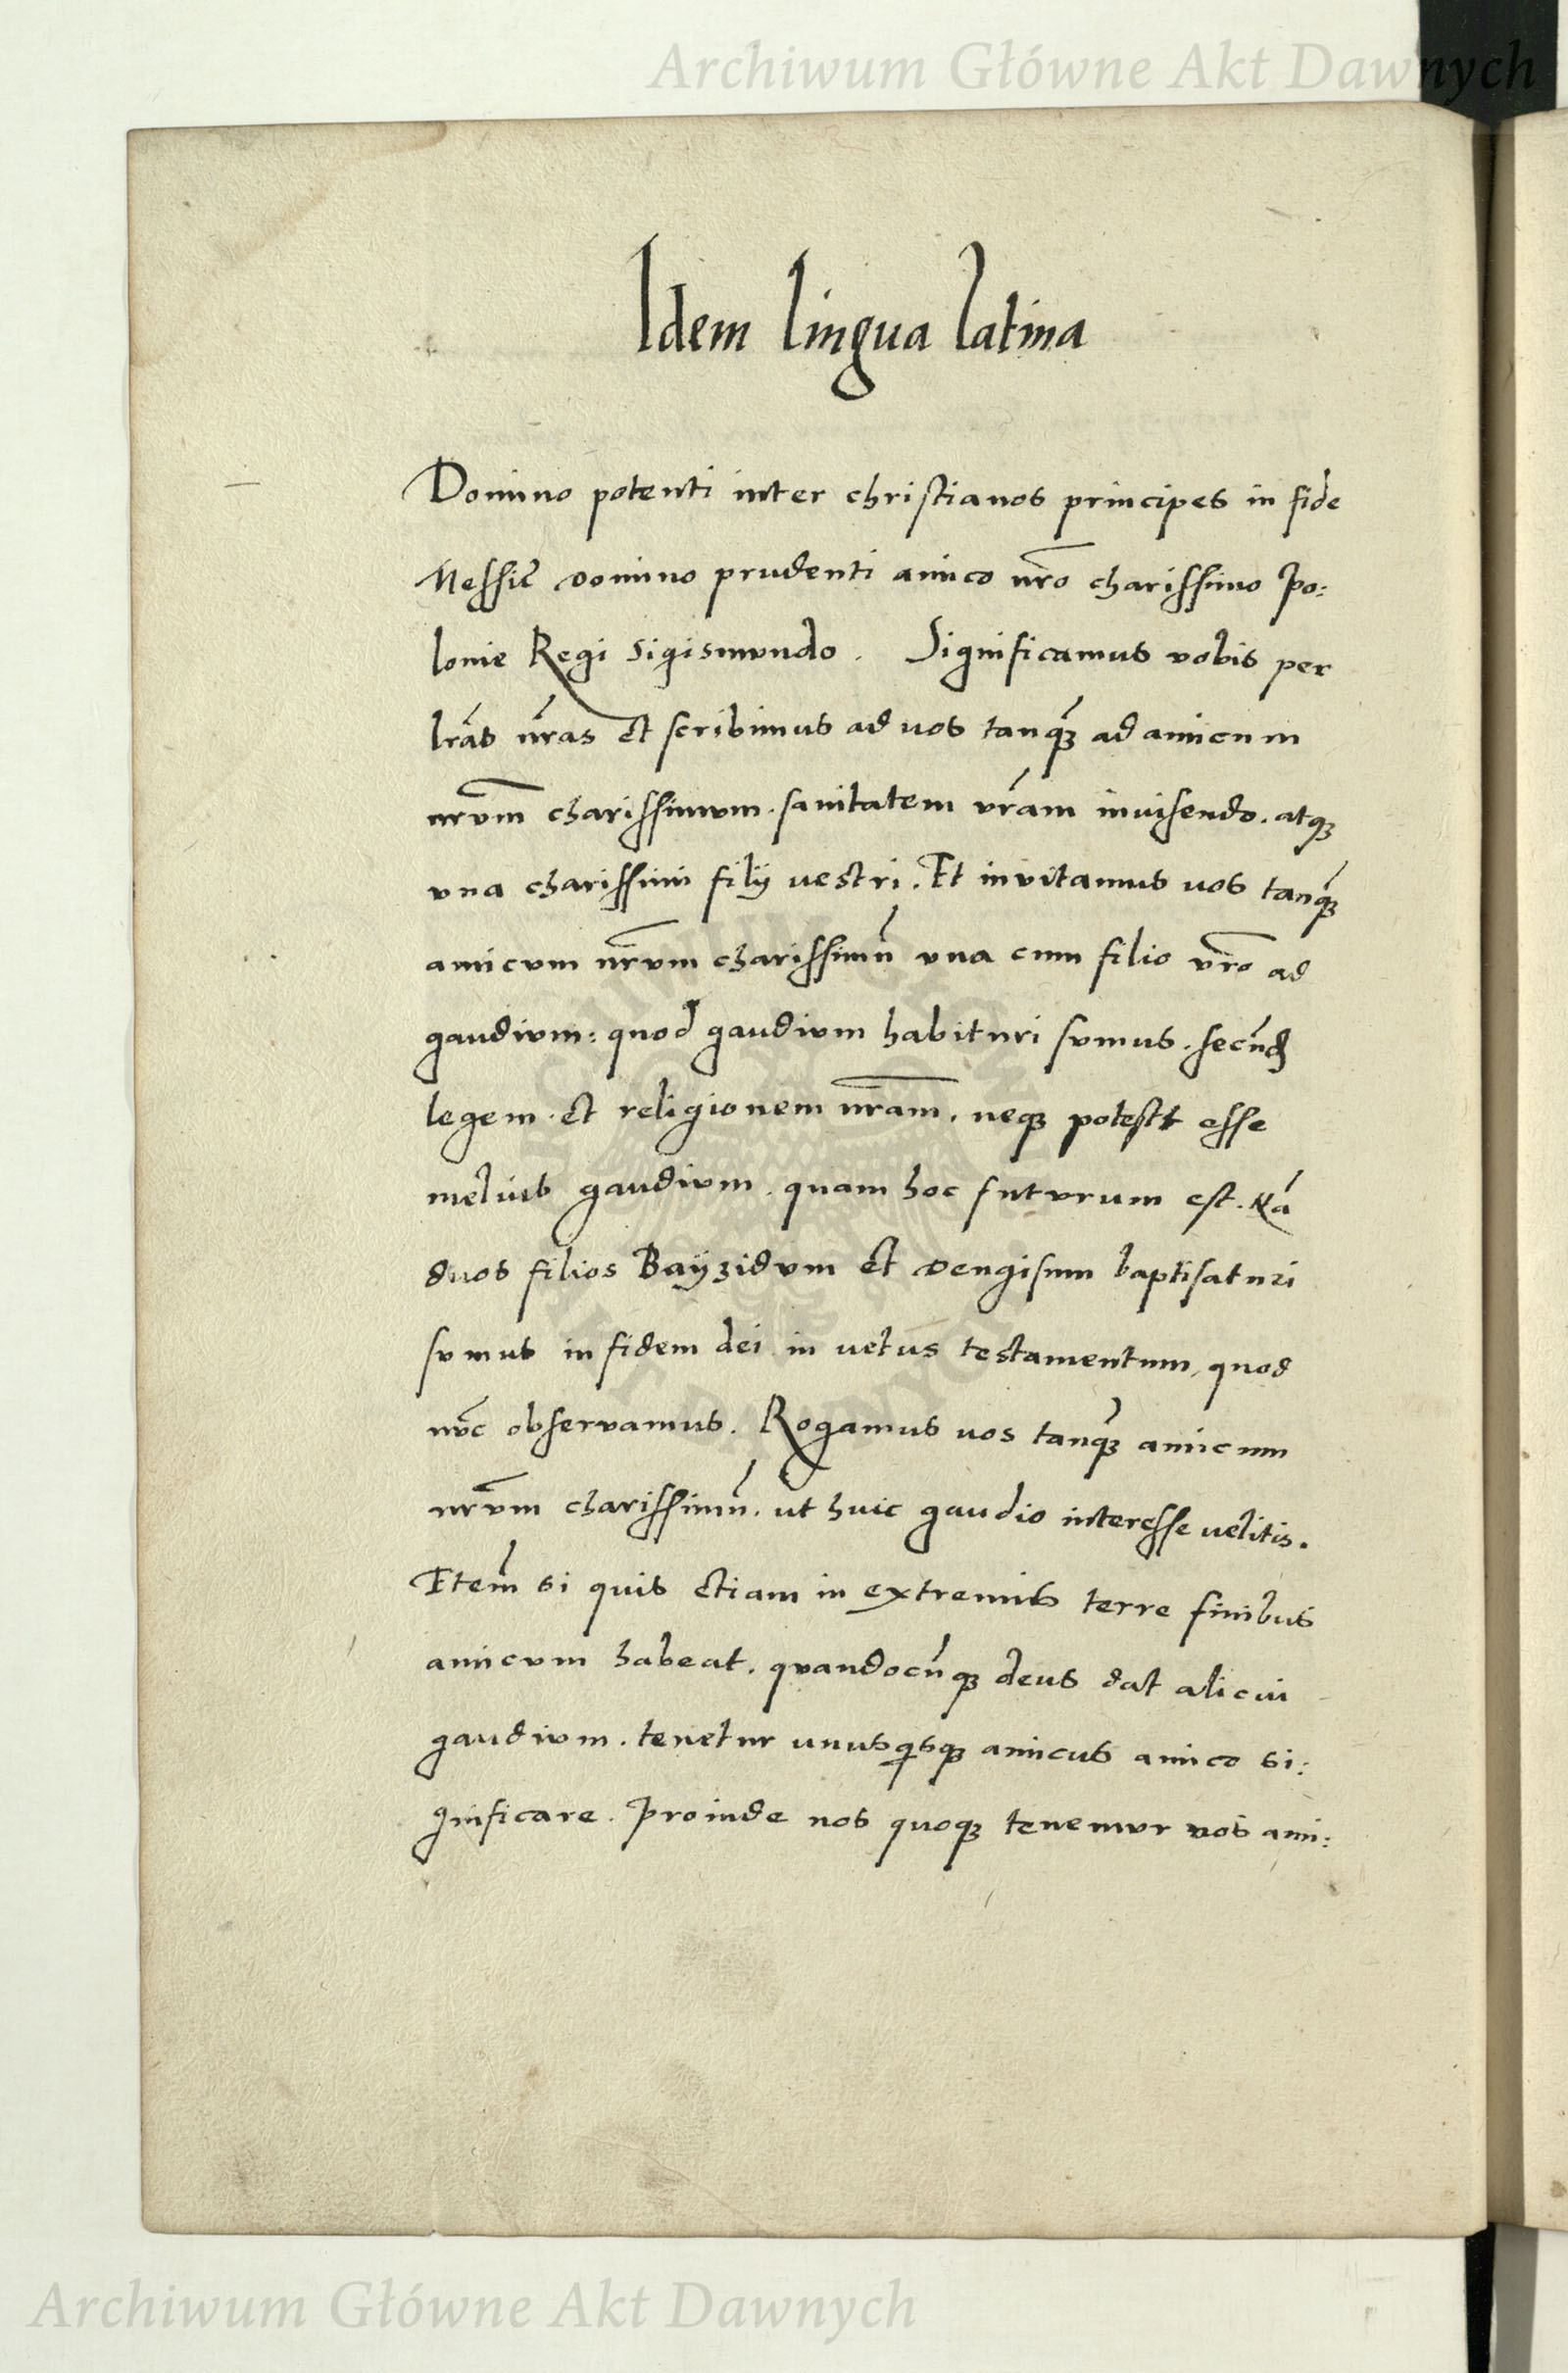 Archiwum Główne Akt Dawnych
Idem lingua latina
Domino potenti inter christianos principes in fide
Messie domino prudenti amico nr̃o charissimo Po:
lonie Regi Sigismundo. Significamus vobis per
lr̃as nr̃as et scribimus ad vos tanq̃ ad amicum
nrvm̃ charissimvm. sanitatem vr̃am invisendo. atq;
vna charissimi filij vestri. Et invitamus vos tanq̃
amicvm nr̃vm charissimũ vna cum filio vr̃o ad
gaudivm: quod gaudivm habituri svmus. secũd
legem. et religionem nr̃am. neq; potest esse
melius gaudivm. quam hoc futvrum est. Nã
duos filios Bayzidvm et Dengisum baptisaturi
svmus in fidem dei. in vetus testamentum, quod
nũc observamus. Rogamus vos tanq̃ amicum
nr̃vm charissimũ. ut huic gaudio interesse velitis.
Etem̃ si quis etiam in extremis terre finibus
amicvm habeat. qvandocũq; deus dat alicui
gaudivm. tenetur unusqsq; amicus amico si:
gnificare. Proinde nos quoq; tenemvr vos ami:
Archiwum Główne Akt Dawnych